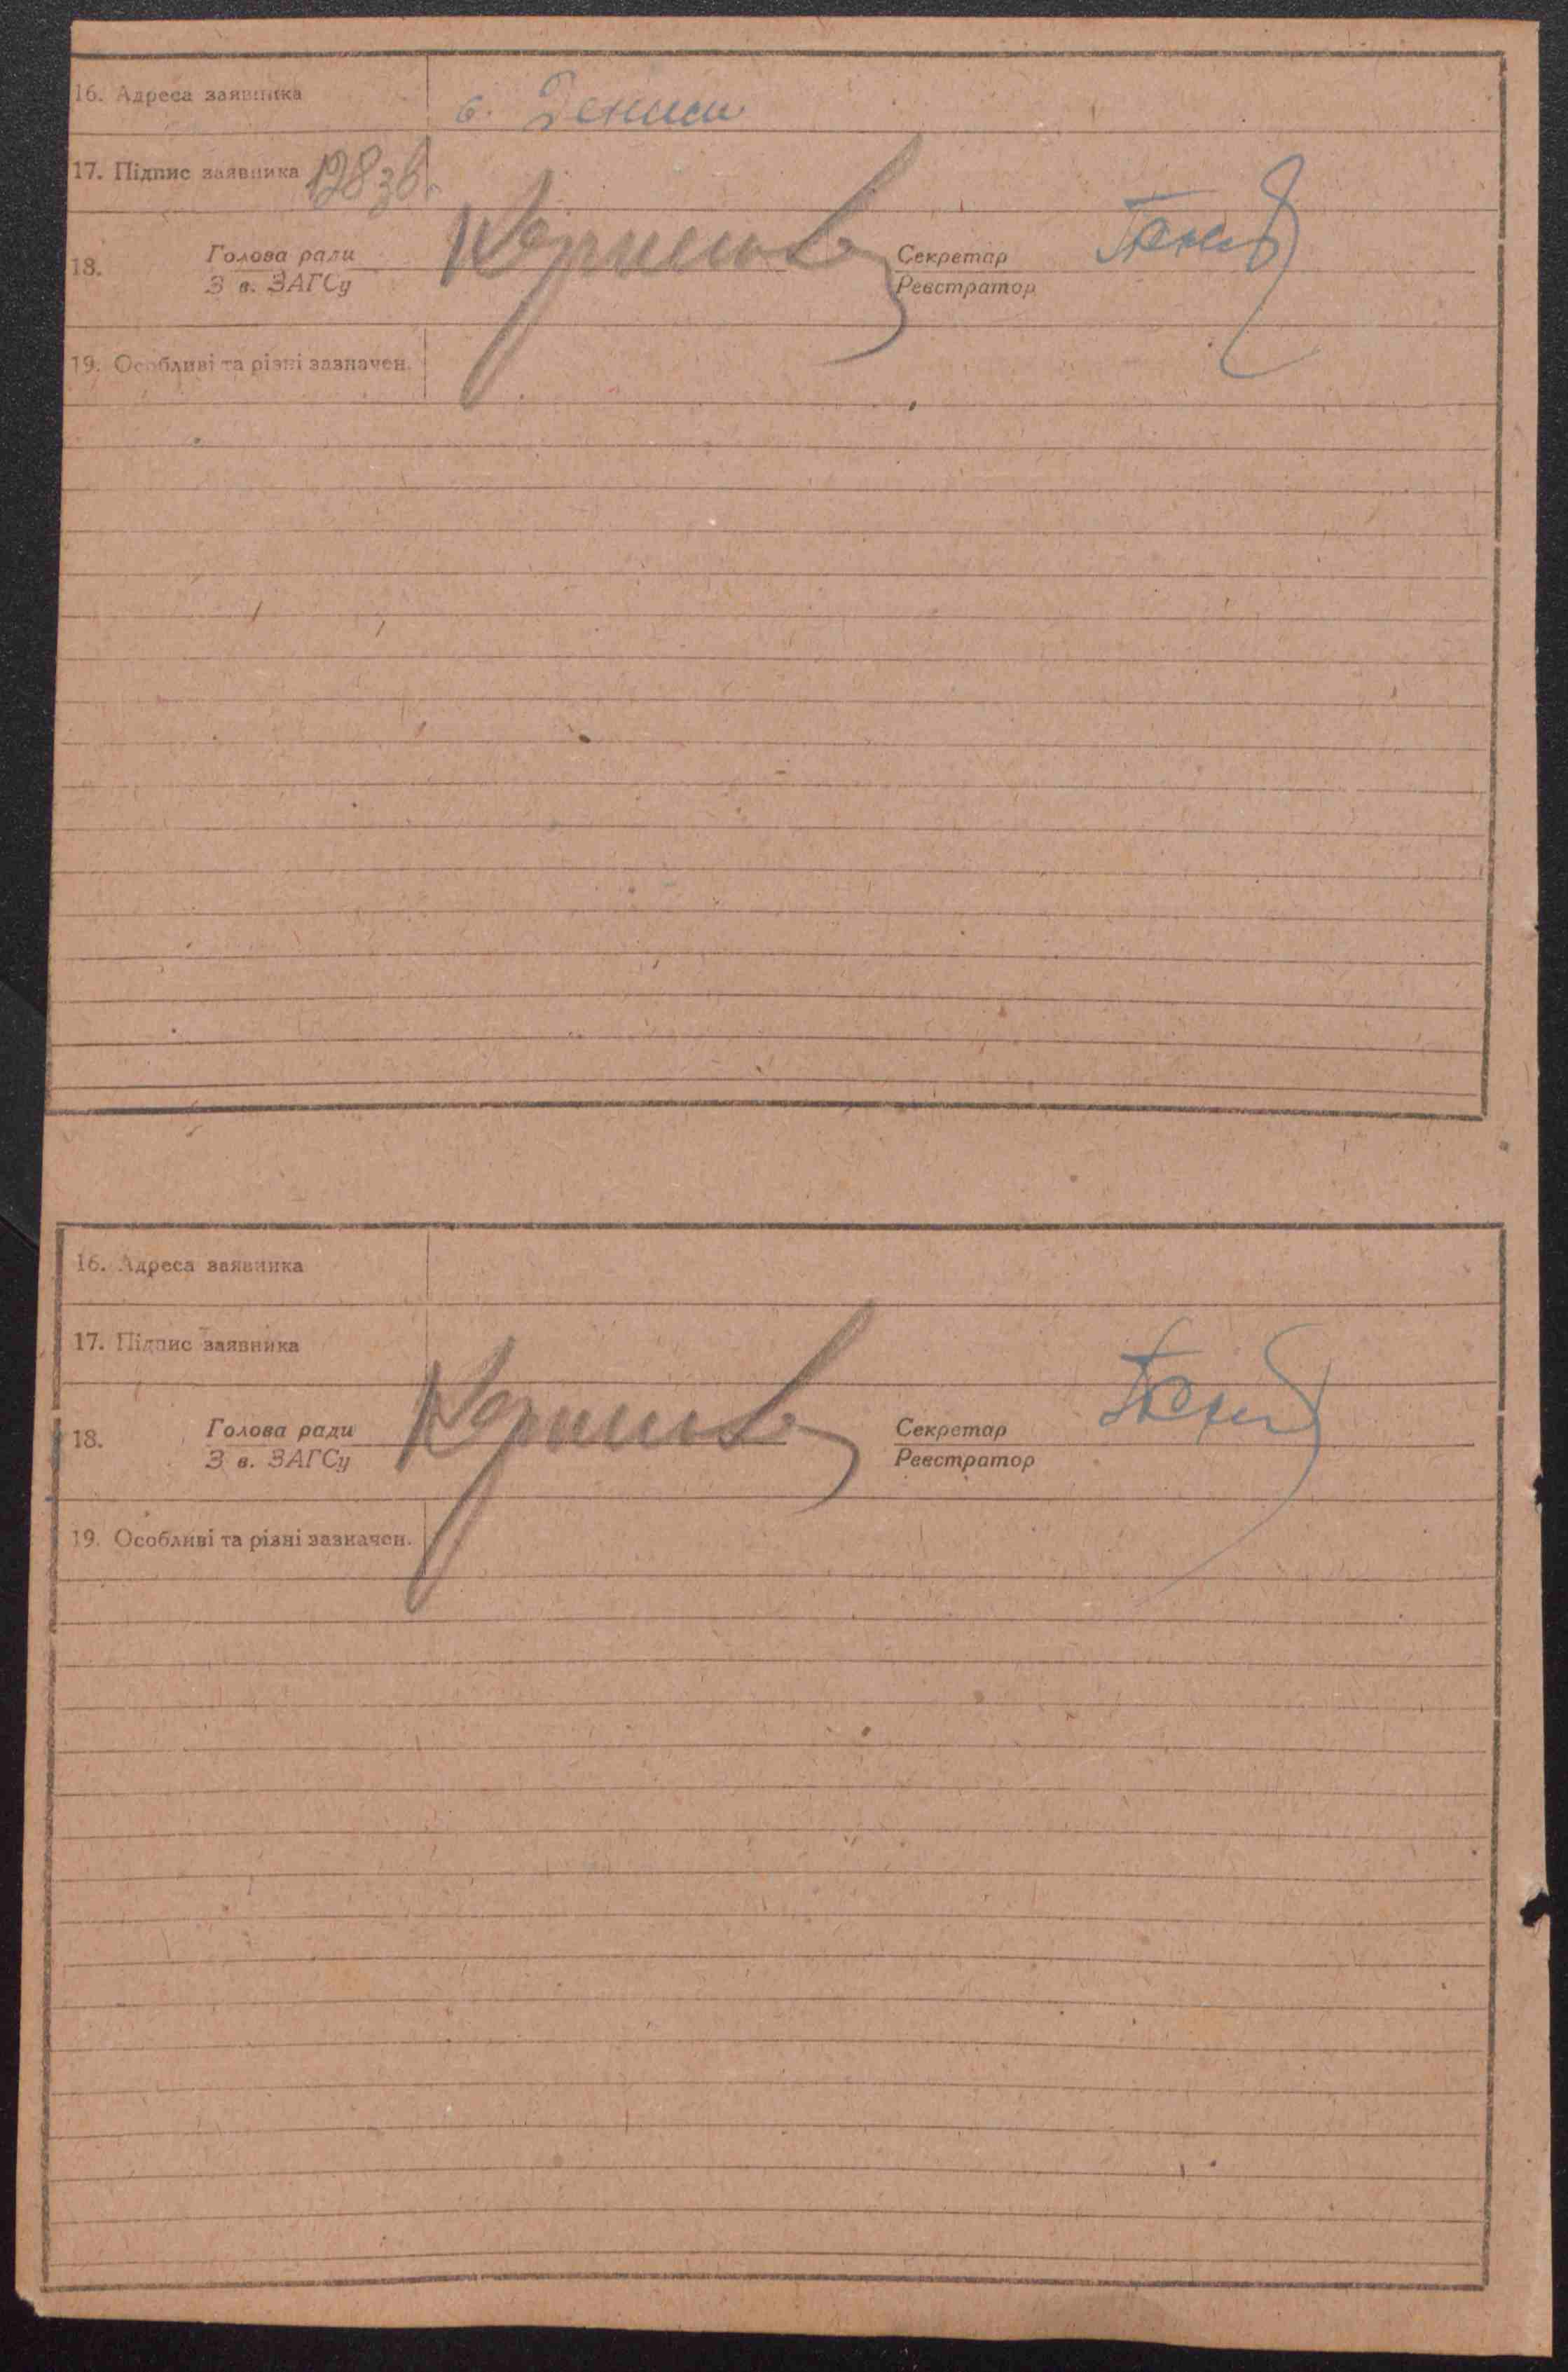 16. Адреса заявника с. Дениси
17. Підпис заявника 128 зв.
18. Голова ради Секретар
З в. ЗАГСу Реєстратор
19. Особливі та різні зазначен.
16. Адреса заявника
17. Підпис заявника
18. Голова ради Секретар
З в. ЗАГСу Реєстратор
19. Особливі та різні зазначен.